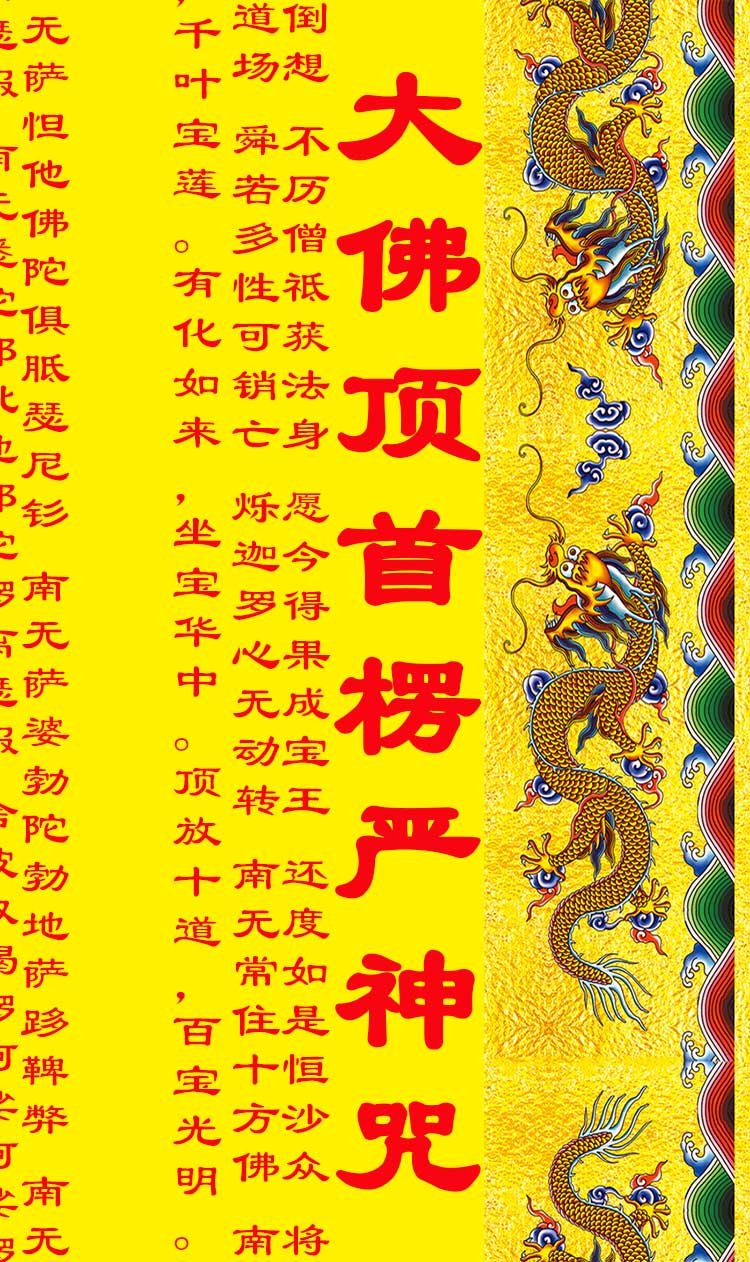 大佛顶首楞严神咒
倒想 不历僧祇获法身 愿今得果成宝王 还度如是恒沙众 将
道场 舜若多性可销亡 烁迦罗心无动转 南无常住十方佛 南
，千叶宝莲。有化如来，坐宝华中。顶放十道，百宝光明。
无萨怛他佛陀俱胝瑟尼钐 南无萨婆勃陀勃地萨跢鞞弊 南无